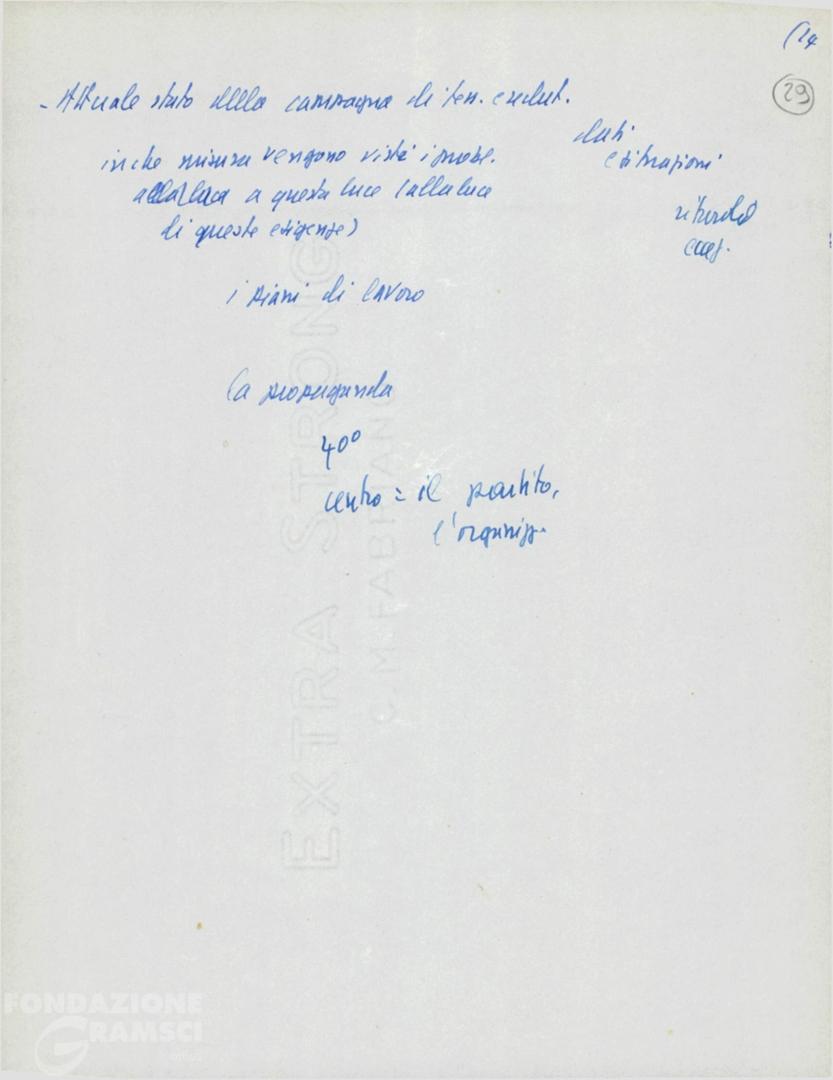 (24
29
- Attuale stato della campagna di tess. e reclut.
dati
e situazioni
in che misura vengono visti i probl.
alla luce a questa luce (alla luce
di queste esigenze)
i piani di lavoro
la propaganda
40°
centro = il partito,
l'organizz.
EXTRA STRONG
C. M. FABRIANO
FONDAZIONE
GRAMSCI